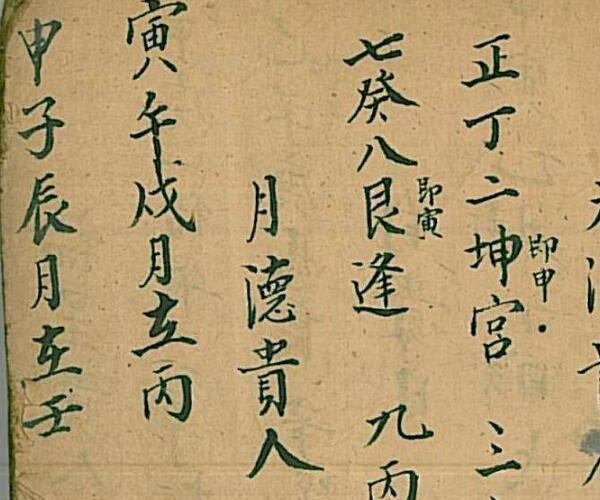 正丁二坤即申宮 三
七癸八艮即寅逢 九丙
月德貴人
寅午戌月在丙
申子辰月在壬